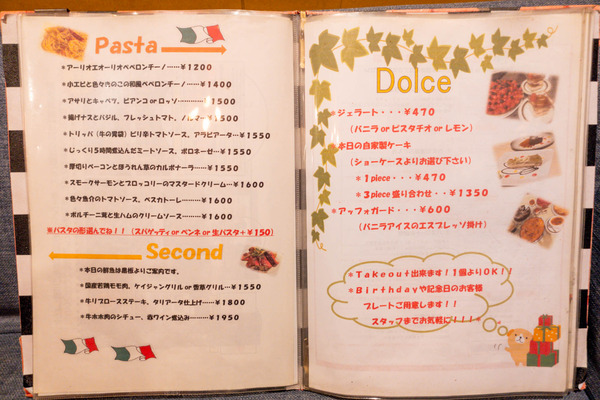 Pasta
*アーリオエオーリオペペロンチーノ……¥1200
*小エビと色々きのこの和風ペペロンチーノ………¥1400
*アサリとキャベツ、ビアンコ or ロッソ……………¥1500
*揚げナスとバジル、フレッシュトマト、ノルマ……¥1500
*トリッパ（牛の胃袋）ピリ辛トマトソース、アラビアータ…¥1550
*じっくり5時間煮込んだミートソース、ボロネーゼ……¥1550
*厚切りベーコンとほうれん草のカルボナーラ………¥1550
*スモークサーモンとブロッコリーのマスタードクリーム…¥1600
*色々魚介のトマトソース、ペスカトーレ…………¥1600
*ポルチーニ茸と生ハムのクリームソース………¥1600
※パスタの形選んでね！！（スパゲッティ or ペンネ or 生パスタ＋¥150）
Second
*本日の鮮魚は黒板よりご案内です。
*国産若鶏モモ肉、ケイジャングリル or 香草グリル…¥1550
*牛リブロースステーキ、タリアータ仕上げ……¥1800
*牛ホホ肉のシチュー、赤ワイン煮込み………¥1950
Dolce
*ジェラート・・・¥470
（バニラ or ピスタチオ or レモン）
*本日の自家製ケーキ
（ショーケースよりお選び下さい）
*1piece・・・¥470
*3piece盛り合わせ・・¥1350
*アッフォガード・・・¥600
（バニラアイスのエスプレッソ掛け）
*Takeout出来ます！1個よりOK！！
*Birthdayや記念日のお客様
プレートご用意します！！
スタッフまでお気軽に！！！*